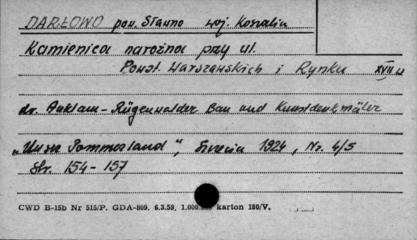 DARŁOWO pow. Sławno woj. Koszalin
Kamienica narożna przy ul.
Powst. Warszawskich i Rynku XVII w
dr. Anklam - Rügenwalder Bau und Kunstdenkmäler
"Unser Pommerland", Szczecin 1924, Nr. 4/5
Str. 154-157
CWD B-15b Nr 515/P. GDA-809. 6.3.59, 1.000. karton 180/V.